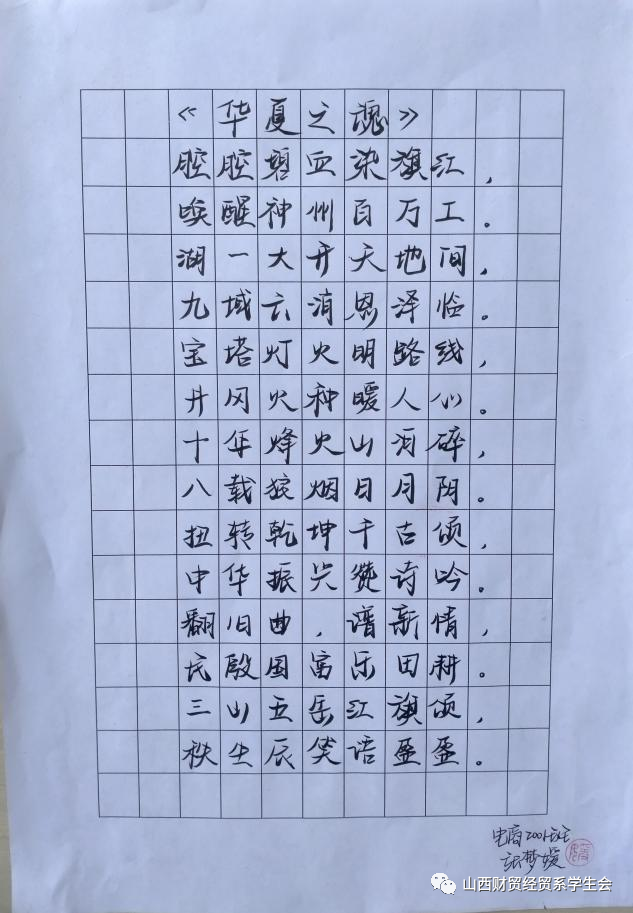 《华夏之魂》
腔腔碧血染旗红，
唤醒神州百万工。
湖一大开天地间，
九域云消恩泽临。
宝塔灯火明路线，
井冈火种暖人心。
十年烽火山河碎，
八载狼烟日月阴。
扭转乾坤千古颂，
中华振兴赞诗吟。
翻旧曲，谱新情，
民殷国富乐田耕。
三山五岳红旗颂，
秩生辰笑语盈盈。
电商2001班
梦媛
山西财贸经贸系学生会